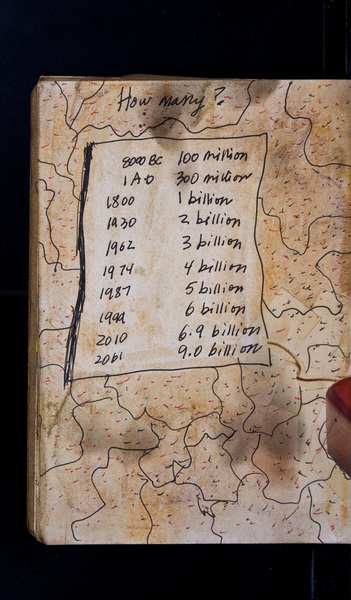 How many?
8000 BC 100 million
1 AD 300 million
1800 1 billion
1930 2 billion
1962 3 billion
1974 4 billion
1987 5 billion
1999 6 billion
2010 6.9 billion
2061 9.0 billion